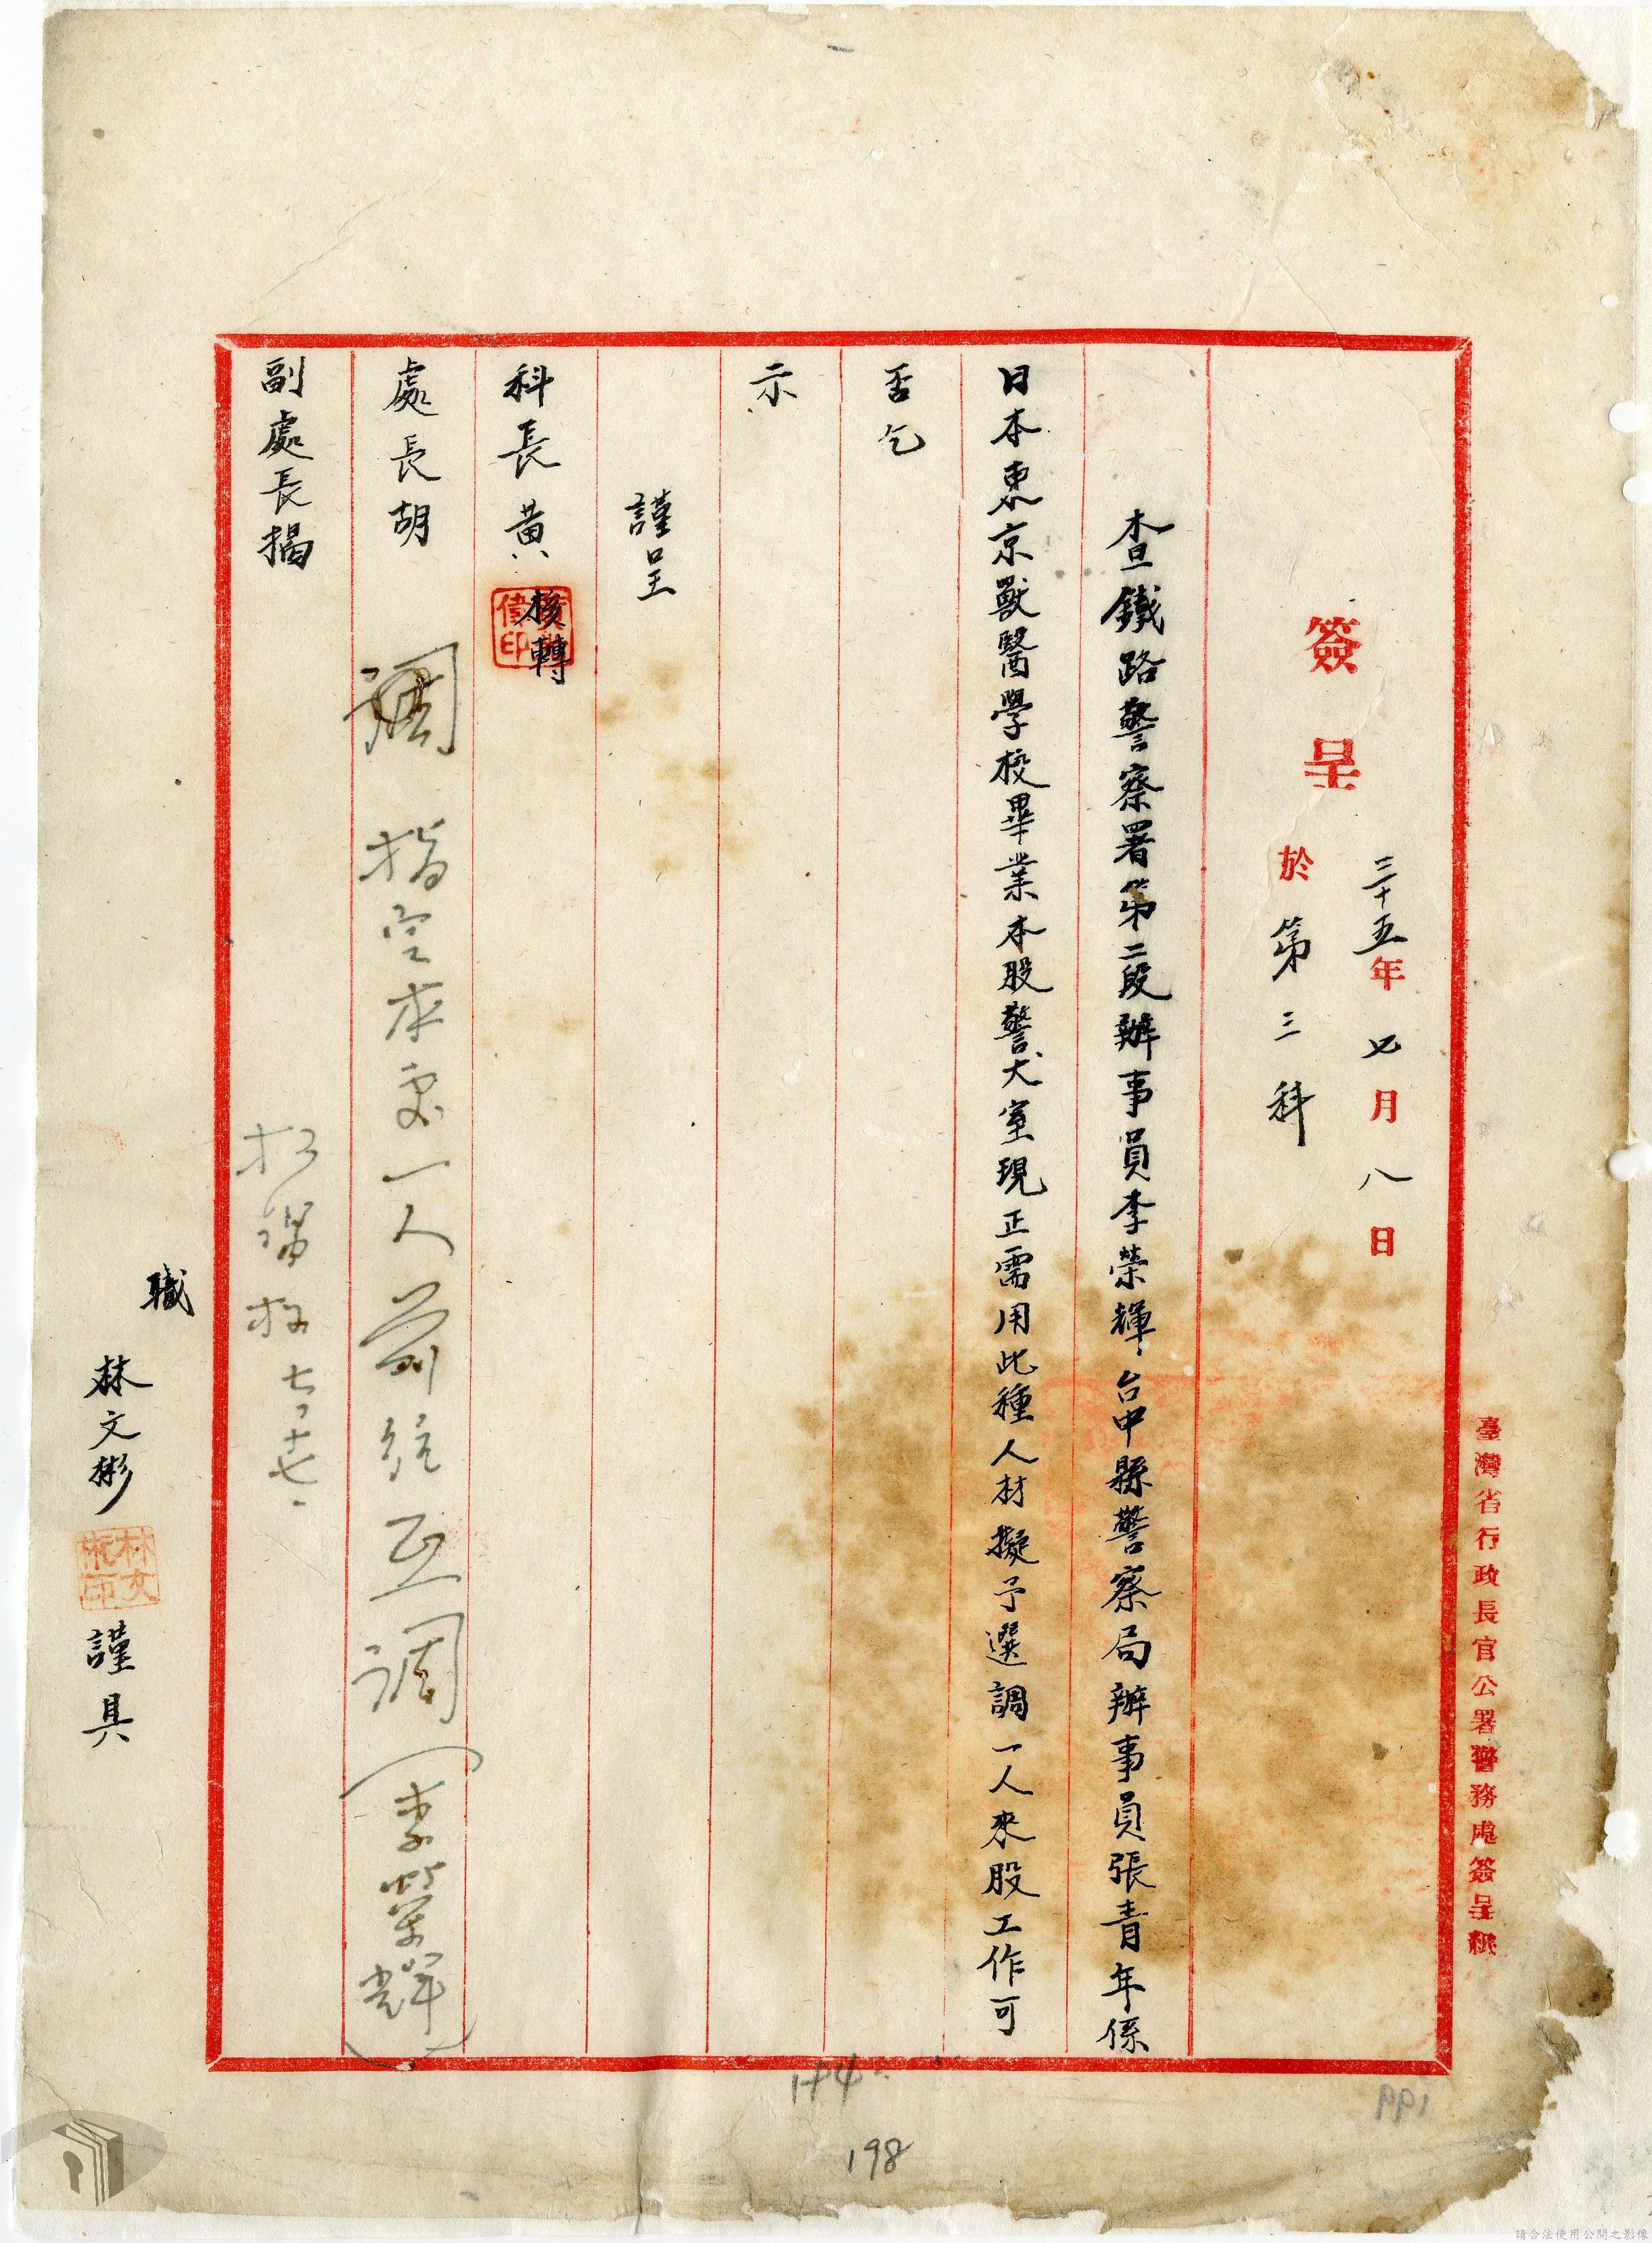 臺灣省行政長官公署警務處簽呈紙
簽呈
三十五年七月八日
於第三科
查鐵路警察署第二段辦事員李榮輝、台中縣警察局辦事員張青年係
日本東京獸醫學校畢業本股警犬室現正需用此種人材擬予選調一人來股工作可
否乞
示
謹呈
科長黃 核轉
處長胡
副處長揭
調
一人
調(李榮輝)
七、十七、
職
林文彬
林文彬印
謹具
144
198
199
請合法使用公開之影像